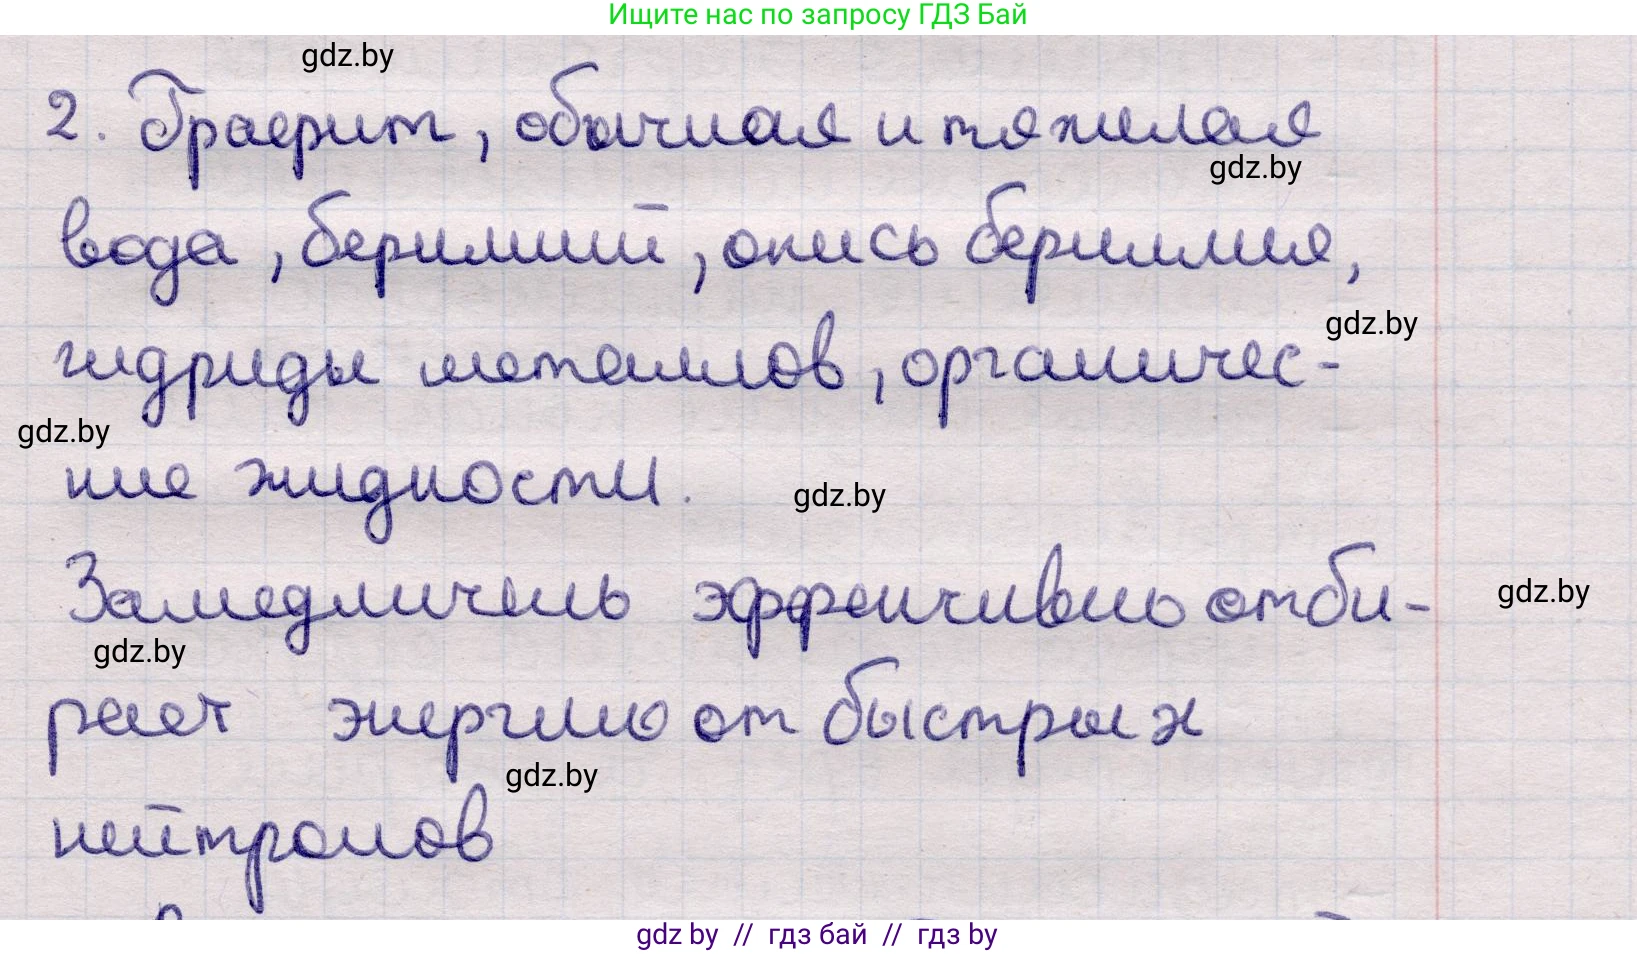 Ищите нас по запросу ГДЗ Бай
gdz.by
2. Графит, обычная и тяжелая
gdz.by
вода, бериллий, окись бериллия,
gdz.by
гидриды металлов, органичес-
gdz.by
кие жидкости.
gdz.by
Замедлитель эффективно отби-
gdz.by
gdz.by
рает энергию от быстрых
gdz.by
нейтронов
gdz by // гдз бай // гдз by